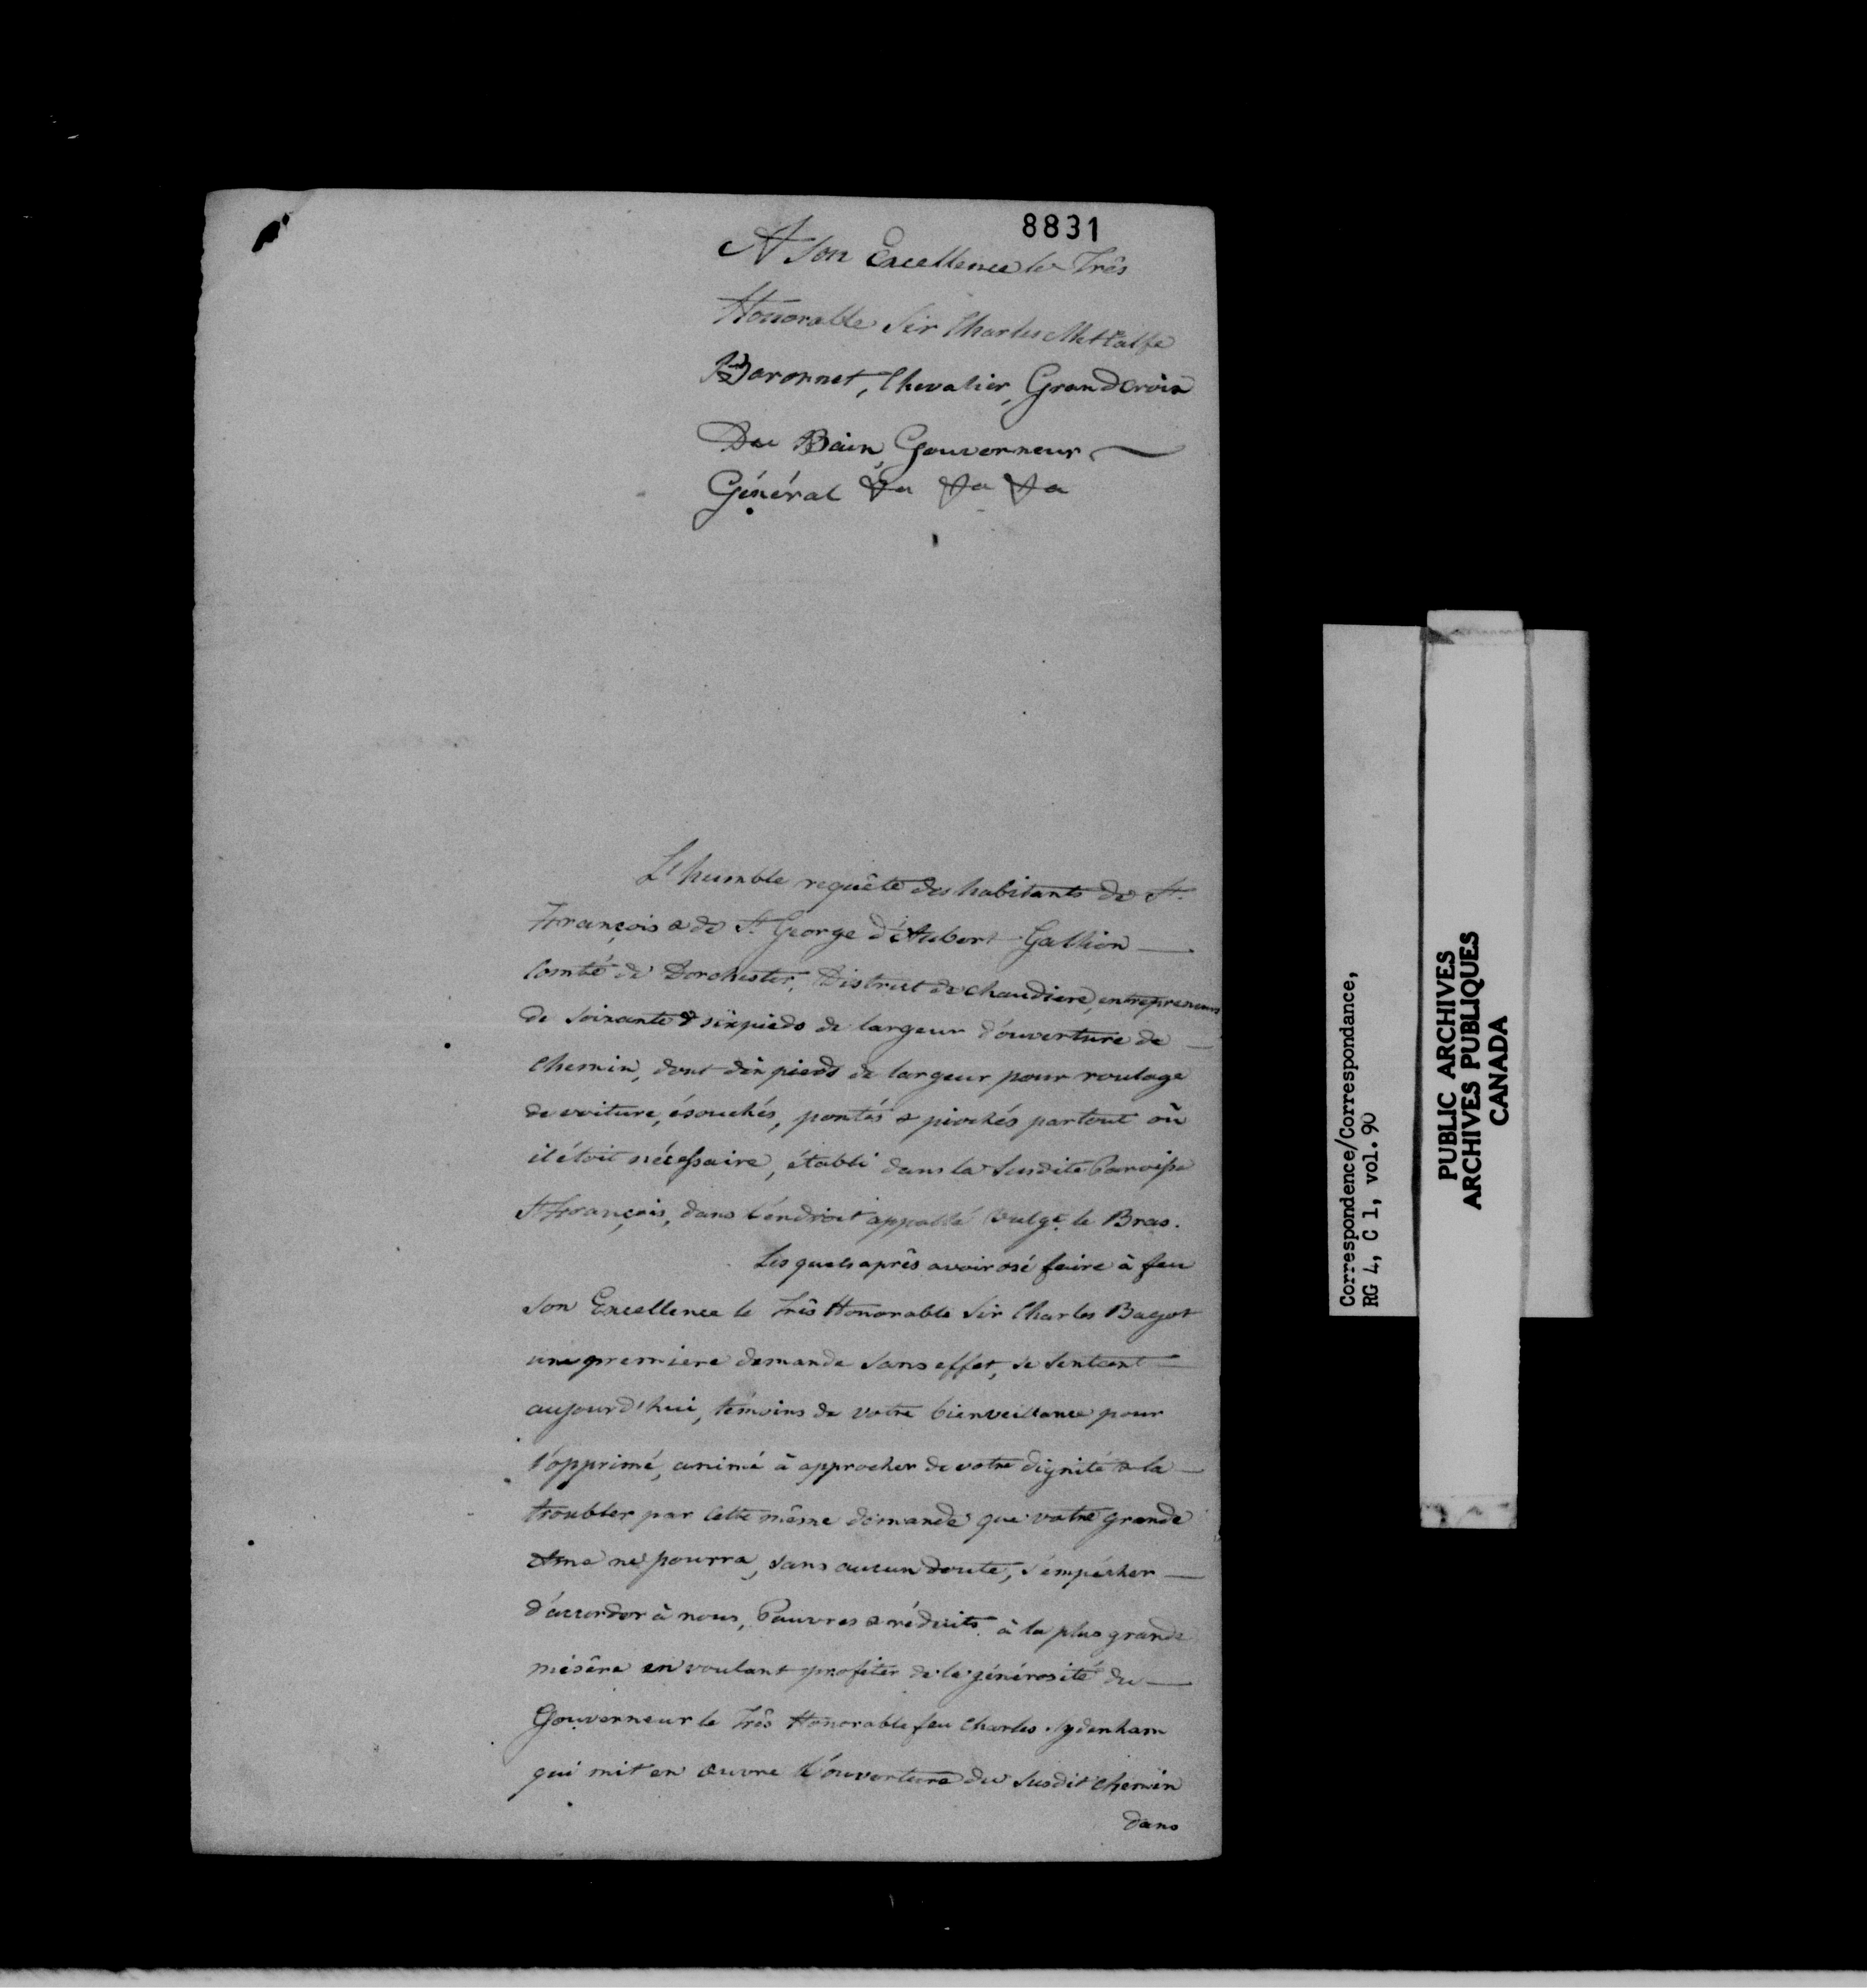 8831
A Son Excellence le Três
Honorable Sir Charles Mettalfe
Baronnet, Chevalier, Grand Croix
Du Bain, Gouverneur
Général &a &a &a
L'humble requête des habitants de St.
François & de St George d'Aubert Gallion
Comté de Dorchester, District de chaudiere, entrepreneurs
de soixante & six pieds de largeur d'ouverture de
chemin, dont dix pieds de largeur pour roulage
de voiture, ésouchés, pontés & piochés partout où
il étoit nécessaire, établi dans la Susdite Paroisse
St François, dans l'endroit appellé Vulgt. le Bras.
Les quels aprês avoir osé faire à feu
Son Excellence le Três Honorable Sir Charles Bagot
une premiere demande sans effet, se sentent
aujourd'hui, témoins de votre bienveillance pour
l'opprimé, animé à approcher de votre dignité & la
troubler par cette même demande que votre grande
Ame ne pourra, sans aucun doute, s'empécher
d'accorder à nous, Pauvres & réduits à la plus grande
misêre en voulant profiter de la générosité du
Gouverneur le Três Honorable feu Charles Sydenham
qui mit en œuvre l'ouverture du susdit chemin
dans
Correspondence/Correspondance,
RG 4, C 1, vol. 90
PUBLIC ARCHIVES
ARCHIVES PUBLIQUES
CANADA